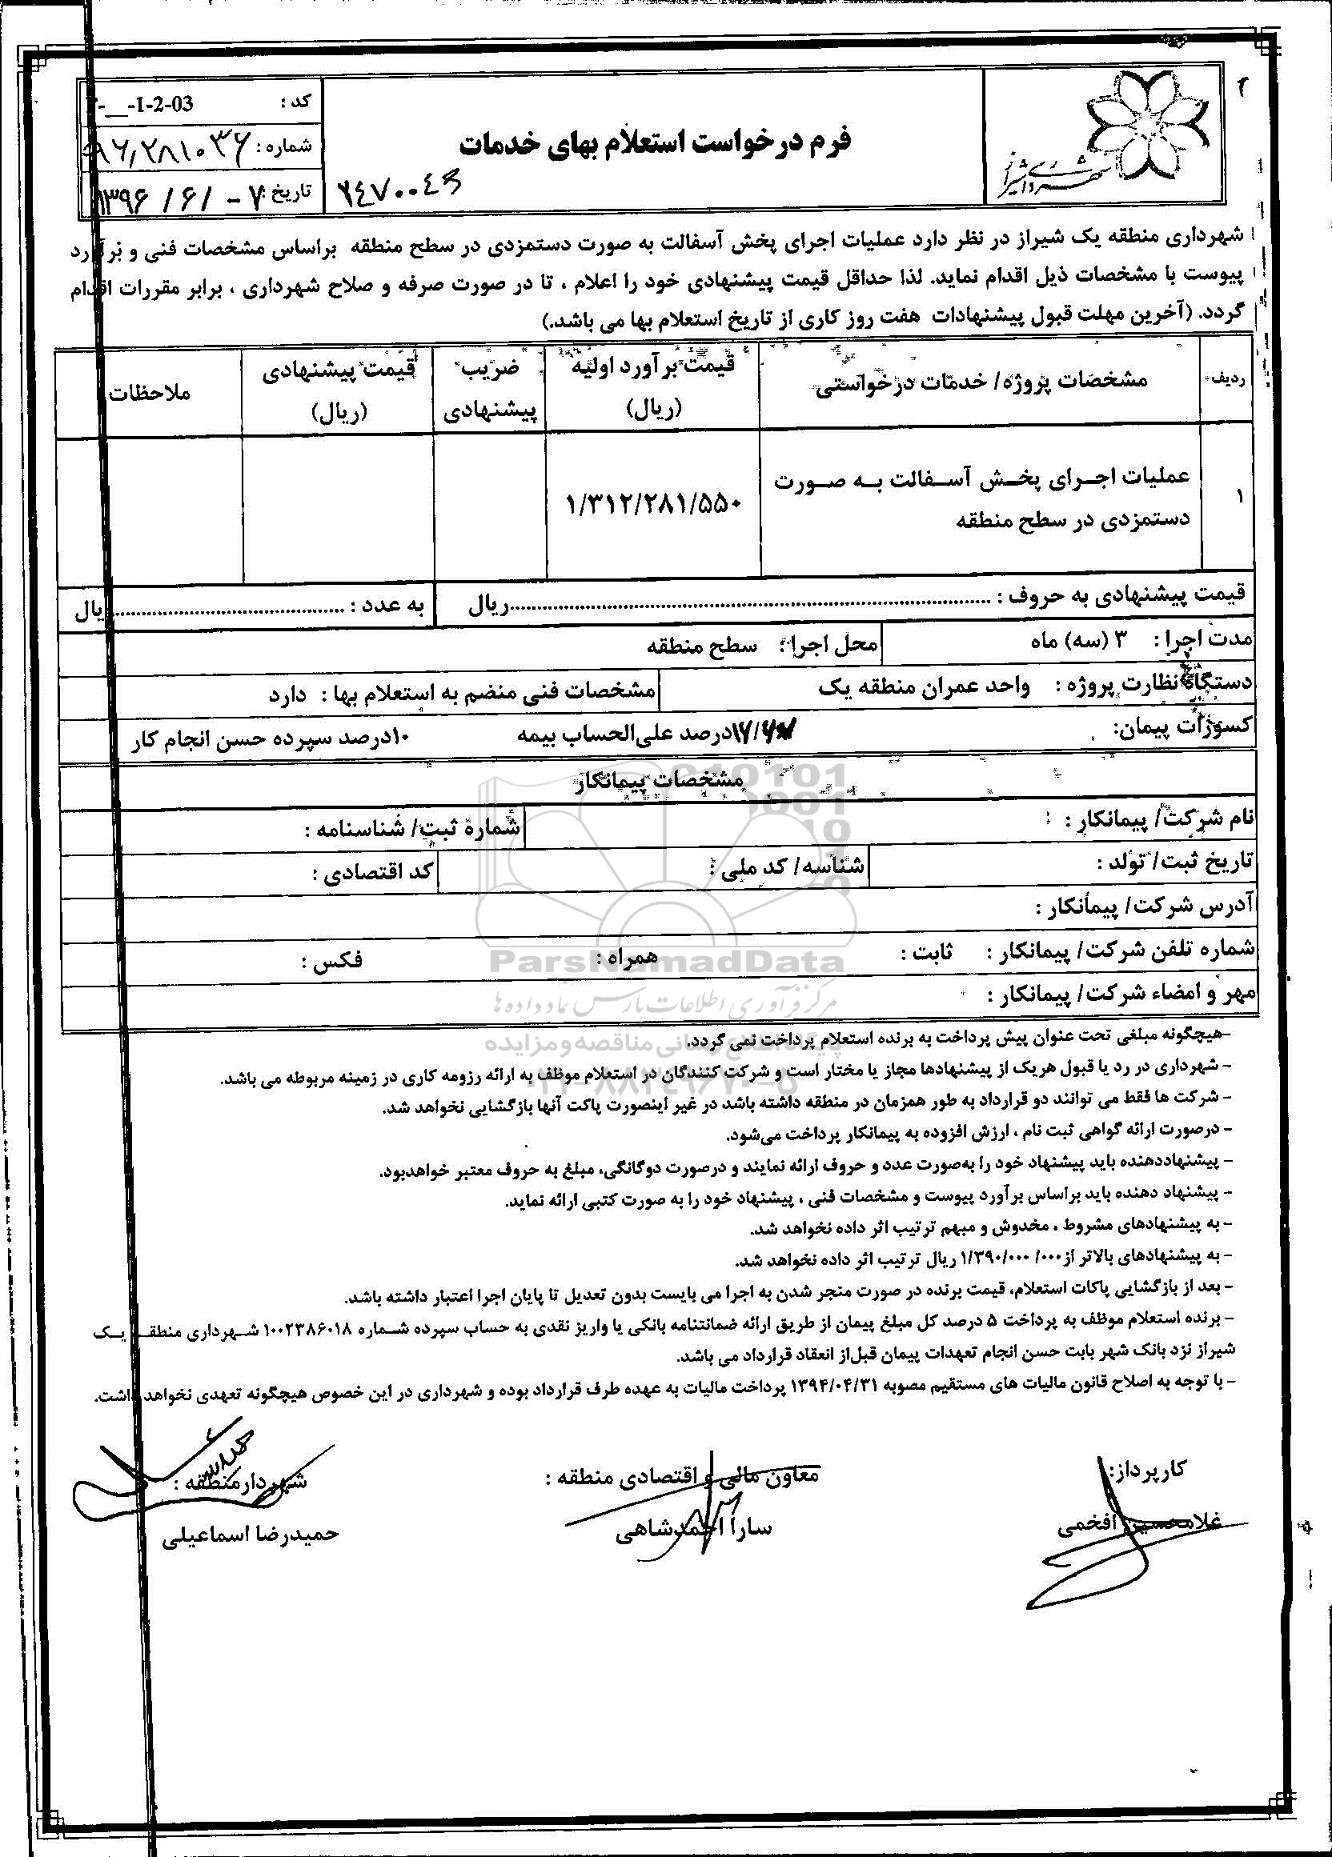 شهرداری شیراز
فرم درخواست استعلام بهای خدمات
۲۴۷۰۰۴۳
کد : -__-1-2-03
شماره : ۹۶/۲۸۱۰۳۶
تاریخ : ۱۳۹۶/۶/-۷
شهرداری منطقه یک شیراز در نظر دارد عملیات اجرای پخش آسفالت به صورت دستمزدی در سطح منطقه براساس مشخصات فنی و برآورد
پیوست با مشخصات ذیل اقدام نماید. لذا حداقل قیمت پیشنهادی خود را اعلام ، تا در صورت صرفه و صلاح شهرداری ، برابر مقررات اقدام
گردد. (آخرین مهلت قبول پیشنهادات هفت روز کاری از تاریخ استعلام بها می باشد.)
ردیف مشخصات پروژه/ خدمات درخواستی قیمت برآورد اولیه (ریال) ضریب پیشنهادی قیمت پیشنهادی (ریال) ملاحظات
۱ عملیات اجرای پخش آسفالت به صورت ۱/۳۱۲/۲۸۱/۵۵۰
دستمزدی در سطح منطقه
قیمت پیشنهادی به حروف : ........................................ریال به عدد : ........................................ریال
مدت اجرا : ۳ (سه) ماه محل اجرا : سطح منطقه
دستگاه نظارت پروژه : واحد عمران منطقه یک مشخصات فنی منضم به استعلام بها : دارد
کسورات پیمان: درصد علی‌الحساب بیمه ۱۰درصد سپرده حسن انجام کار
مشخصات پیمانکار
نام شرکت/ پیمانکار : شماره ثبت/ شناسنامه :
تاریخ ثبت/ تولد : شناسه/ کد ملی : کد اقتصادی :
آدرس شرکت/ پیمانکار :
شماره تلفن شرکت/ پیمانکار : ثابت : همراه : فکس :
ParsNamadData
مهر و امضاء شرکت/ پیمانکار :
مرکز فرآوری اطلاعات پارس نماد داده ها
-هیچگونه مبلغی تحت عنوان پیش پرداخت به برنده استعلام پرداخت نمی گردد.
پایگاه اطلاع رسانی مناقصه و مزایده
- شهرداری در رد یا قبول هریک از پیشنهادها مجاز یا مختار است و شرکت کنندگان در استعلام موظف به ارائه رزومه کاری در زمینه مربوطه می باشد.
- شرکت ها فقط می توانند دو قرارداد به طور همزمان در منطقه داشته باشد در غیر اینصورت پاکت آنها بازگشایی نخواهد شد.
- درصورت ارائه گواهی ثبت نام ، ارزش افزوده به پیمانکار پرداخت می‌شود.
- پیشنهاددهنده باید پیشنهاد خود را به‌صورت عدد و حروف ارائه نمایند و درصورت دوگانگی، مبلغ به حروف معتبر خواهدبود.
- پیشنهاد دهنده باید براساس برآورد پیوست و مشخصات فنی ، پیشنهاد خود را به صورت کتبی ارائه نماید.
- به پیشنهادهای مشروط ، مخدوش و مبهم ترتیب اثر داده نخواهد شد.
- به پیشنهادهای بالاتر از ۱/۳۹۰/۰۰۰/۰۰۰ ریال ترتیب اثر داده نخواهد شد.
- بعد از بازگشایی پاکات استعلام، قیمت برنده در صورت منجر شدن به اجرا می بایست بدون تعدیل تا پایان اجرا اعتبار داشته باشد.
- برنده استعلام موظف به پرداخت ۵ درصد کل مبلغ پیمان از طریق ارائه ضمانتنامه بانکی یا واریز نقدی به حساب سپرده شماره ۱۰۰۲۳۸۶۰۱۸ شهرداری منطقه یک
شیراز نزد بانک شهر بابت حسن انجام تعهدات پیمان قبل‌از انعقاد قرارداد می باشد.
- با توجه به اصلاح قانون مالیات های مستقیم مصوبه ۱۳۹۴/۰۴/۳۱ پرداخت مالیات به عهده طرف قرارداد بوده و شهرداری در این خصوص هیچگونه تعهدی نخواهد داشت.
کارپرداز: معاون مالی و اقتصادی منطقه : شهردار منطقه :
غلامحسین افخمی سارا احمدشاهی حمیدرضا اسماعیلی